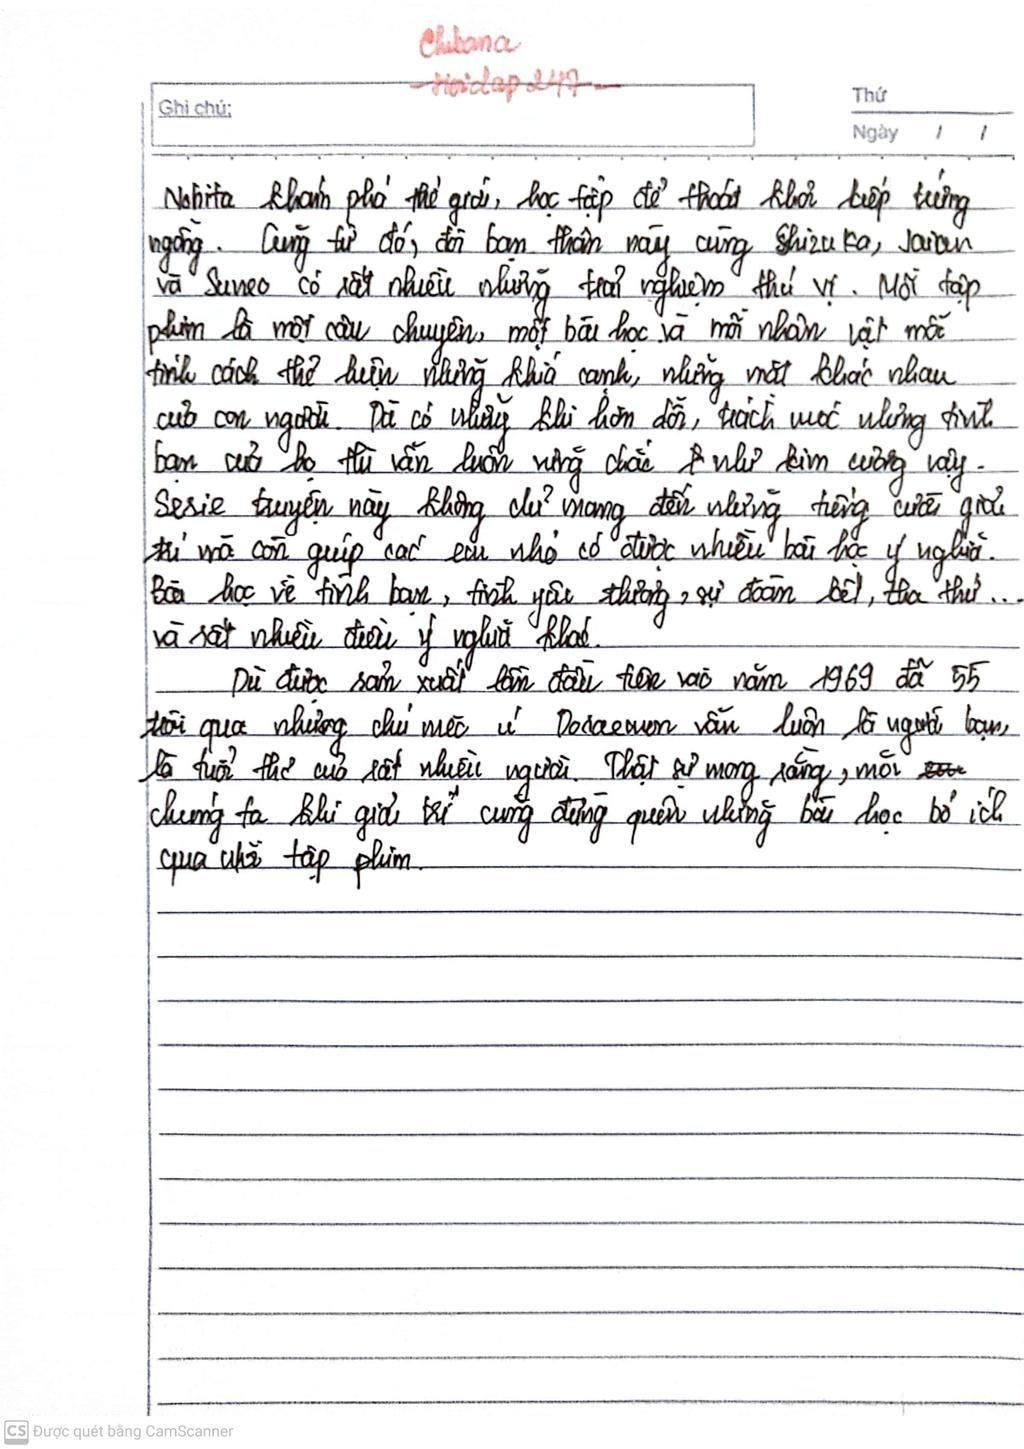 Chibana
Hoidap247
Ghi chú:
Thứ
Ngày / /
Nobita khám phá thế giới, học tập để thoát khỏi kiếp tưởng
ngẫng. Cũng từ đó, đôi bạn thân này cùng Shizuka, Jaian
và Suneo có rất nhiều những trải nghiệm thú vị. Mỗi tập
phim là một câu chuyện, một bài học và mỗi nhân vật mỗi
tính cách thể hiện những khía cạnh, những mặt khác nhau
của con người. Dù có những khi hờn dỗi, trách móc nhưng tình
bạn của họ thì vẫn luôn vững chắc như kim cương vậy.
Serie truyện này không chỉ mang đến những tiếng cười giải
trí mà còn giúp các em nhỏ có được nhiều bài học ý nghĩa.
Bài học về tình bạn, tình yêu thương, sự đoàn kết, tha thứ...
và rất nhiều điều ý nghĩa khác.
Dù được sản xuất lần đầu tiên vào năm 1969 đã 55
trôi qua nhưng chú mèo ú Doraemon vẫn luôn là người bạn,
là tuổi thơ của rất nhiều người. Thật sự mong rằng, mỗi
chúng ta khi giải trí cũng đừng quên những bài học bổ ích
qua mỗi tập phim.
CS Được quét bằng CamScanner